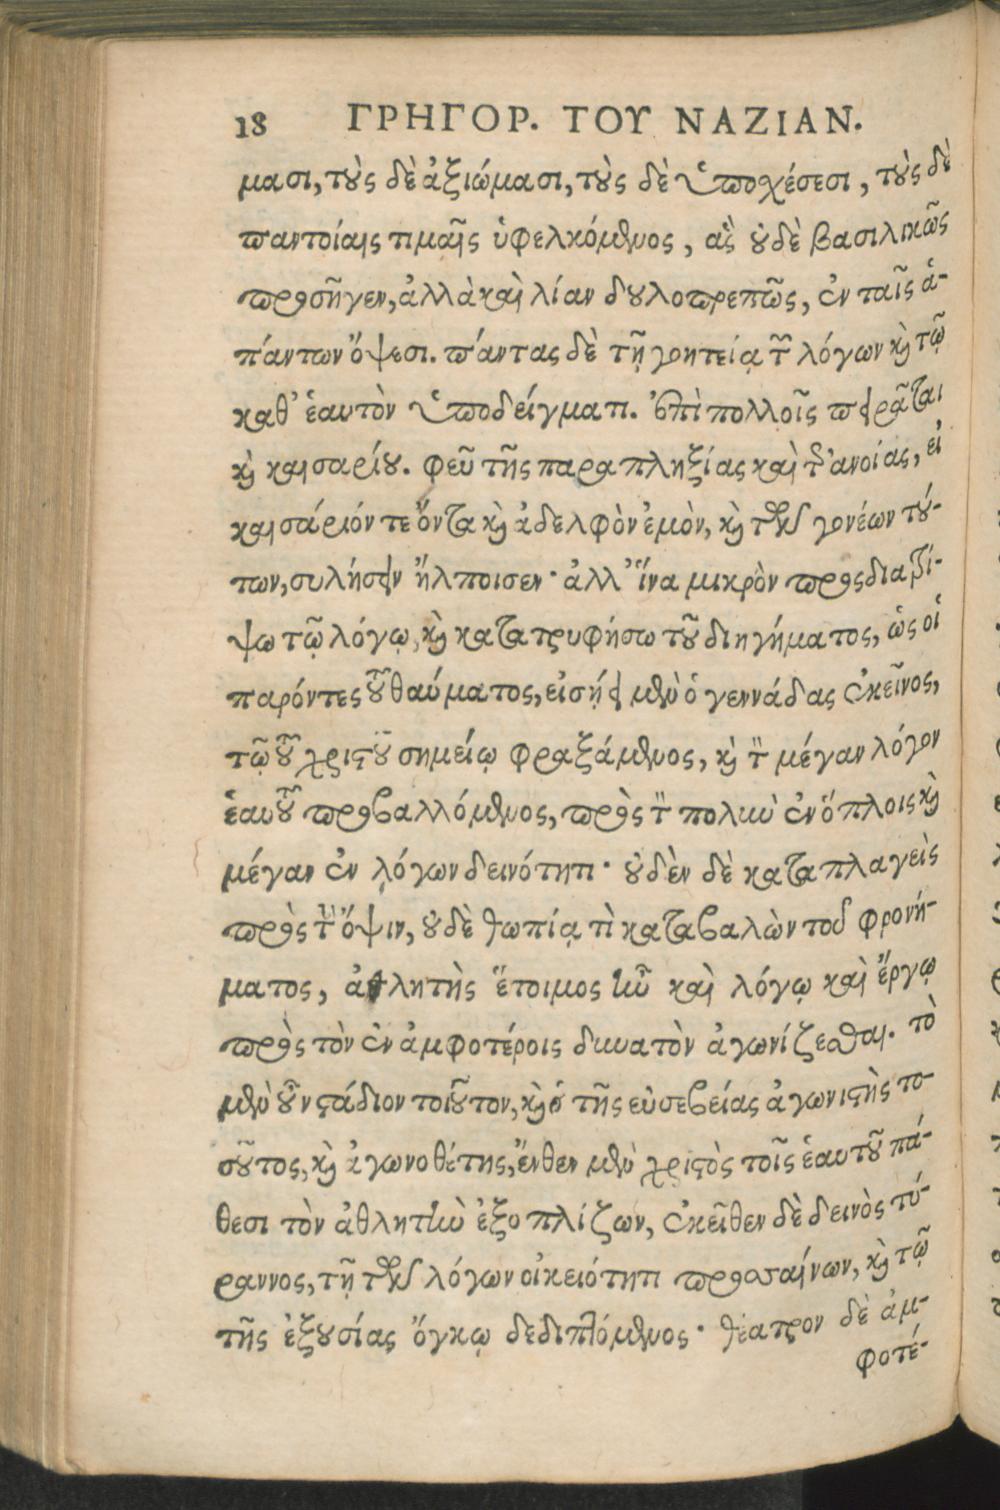 18 ΓΡΗΓΟΡ. ΤΟΥ ΝΑΖΙΑΝ.
μασι, τοὺς δὲ ἀξιώμασι, τοὺς δὲ ὑποσχέσεσι, τοὺς δὲ
παντοίαις τιμαῖς ὑφελκόμενος, ἃς οὐδὲ βασιλικῶς
προσῆγεν, ἀλλὰ καὶ λίαν δουλοπρεπῶς, ἐν ταῖς ἁ-
πάντων ὄψεσι. πάντας δὲ τῇ γοητείᾳ τῶν λόγων καὶ τῷ
καθ' ἑαυτὸν ὑποδείγματι. ἐπὶ πολλοῖς πειρᾶται
καὶ καισαρίου. φεῦ τῆς παραπληξίας καὶ τῆς ἀνοίας, εἰ
καισάριόν τε ὄντα καὶ ἀδελφὸν ἐμὸν, καὶ τῶν γονέων τού-
των, συλήσειν ἤλπισεν· ἀλλ' ἵνα μικρὸν προσδιατρί-
ψω τῷ λόγῳ, καὶ κατατρυφήσω τοῦ διηγήματος, ὡς οἱ
παρόντες τοῦ θαύματος, εἰσῄει μὲν ὁ γεννάδας ἐκεῖνος,
τῷ τοῦ χριστοῦ σημείῳ φραξάμενος, καὶ τὸν μέγαν λόγον
ἑαυτοῦ προβαλλόμενος, πρὸς τὸν πολὺν ἐν ὅπλοις καὶ
μέγαν ἐν λόγων δεινότητι· οὐδὲν δὲ καταπλαγεὶς
πρὸς τὴν ὄψιν, οὐδὲ θωπίᾳ τὶ καταβαλὼν τοῦ φρονή-
ματος, ἀθλητὴς ἕτοιμος ἦν καὶ λόγῳ καὶ ἔργῳ
πρὸς τὸν ἐν ἀμφοτέροις δυνατὸν ἀγωνίζεσθαι. τὸ
μὲν οὖν στάδιον τοιοῦτον, καὶ ὁ τῆς εὐσεβείας ἀγωνιστὴς το-
σοῦτος, καὶ ἀγωνοθέτης, ἔνθεν μὲν χριστὸς τοῖς ἑαυτοῦ πά-
θεσι τὸν ἀθλητὴν ἐξοπλίζων, ἐκεῖθεν δὲ δεινὸς τύ-
ραννος, τῇ τῶν λόγων οἰκειότητι προσσαίνων, καὶ τῷ
τῆς ἐξουσίας ὄγκῳ δεδιττόμενος· θέατρον δὲ ἀμ-
φοτέ-